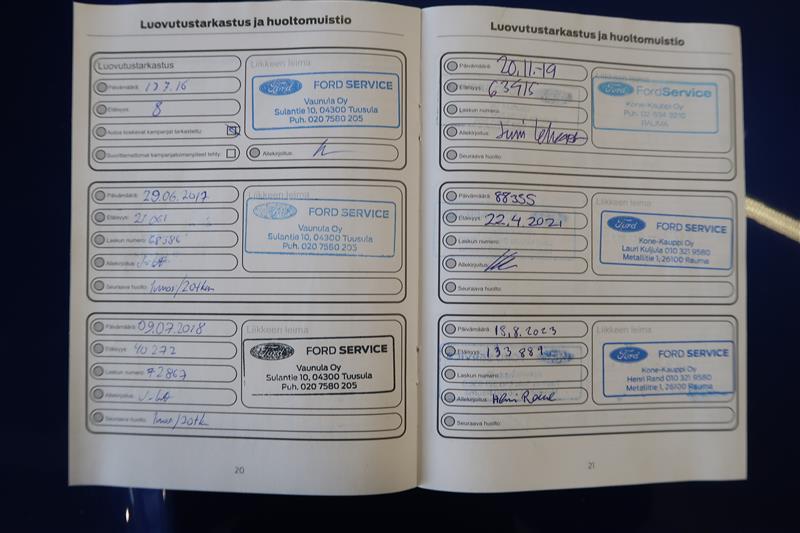 Luovutustarkastus ja huoltomuistio
Luovutustarkastus
Liikkeen leima
Päivämäärä:
Etäisyys: 8
Autoa koskevat kampanjat tarkastettu:
Suorittamattomat kampanjatoimenpiteet tehty:
Allekirjoitus:
Ford FORD SERVICE
Vaunula Oy
Sulantie 10, 04300 Tuusula
Puh. 020 7580 205
Päivämäärä: 29.06.2017
Etäisyys:
Laskun numero:
Allekirjoitus:
Seuraava huolto: 1vuosi/20tkm
Liikkeen leima
Ford FORD SERVICE
Vaunula Oy
Sulantie 10, 04300 Tuusula
Puh. 020 7580 205
Päivämäärä: 09.07.2018
Etäisyys: 40272
Laskun numero: 72867
Allekirjoitus:
Seuraava huolto: 1vuosi/20tkm
Liikkeen leima
Ford FORD SERVICE
Vaunula Oy
Sulantie 10, 04300 Tuusula
Puh. 020 7580 205
20
Luovutustarkastus ja huoltomuistio
Päivämäärä: 20.11.-19
Etäisyys: 63415
Laskun numero:
Allekirjoitus:
Seuraava huolto:
Liikkeen leima
Ford FordService
Kone-Kauppi Oy
RAUMA
Päivämäärä: 88355
Etäisyys: 22.4.2021
Laskun numero:
Allekirjoitus:
Seuraava huolto:
Ford FORD SERVICE
Kone-Kauppi Oy
Lauri Kuljula 010 321 9580
Metallitie 1, 26100 Rauma
Päivämäärä: 18.8.2023
Etäisyys: 133.889
Laskun numero:
Allekirjoitus: Henri Rand
Seuraava huolto:
Ford FORD SERVICE
Kone-Kauppi Oy
Henri Rand 010 321 9580
Metallitie 1, 26100 Rauma
21